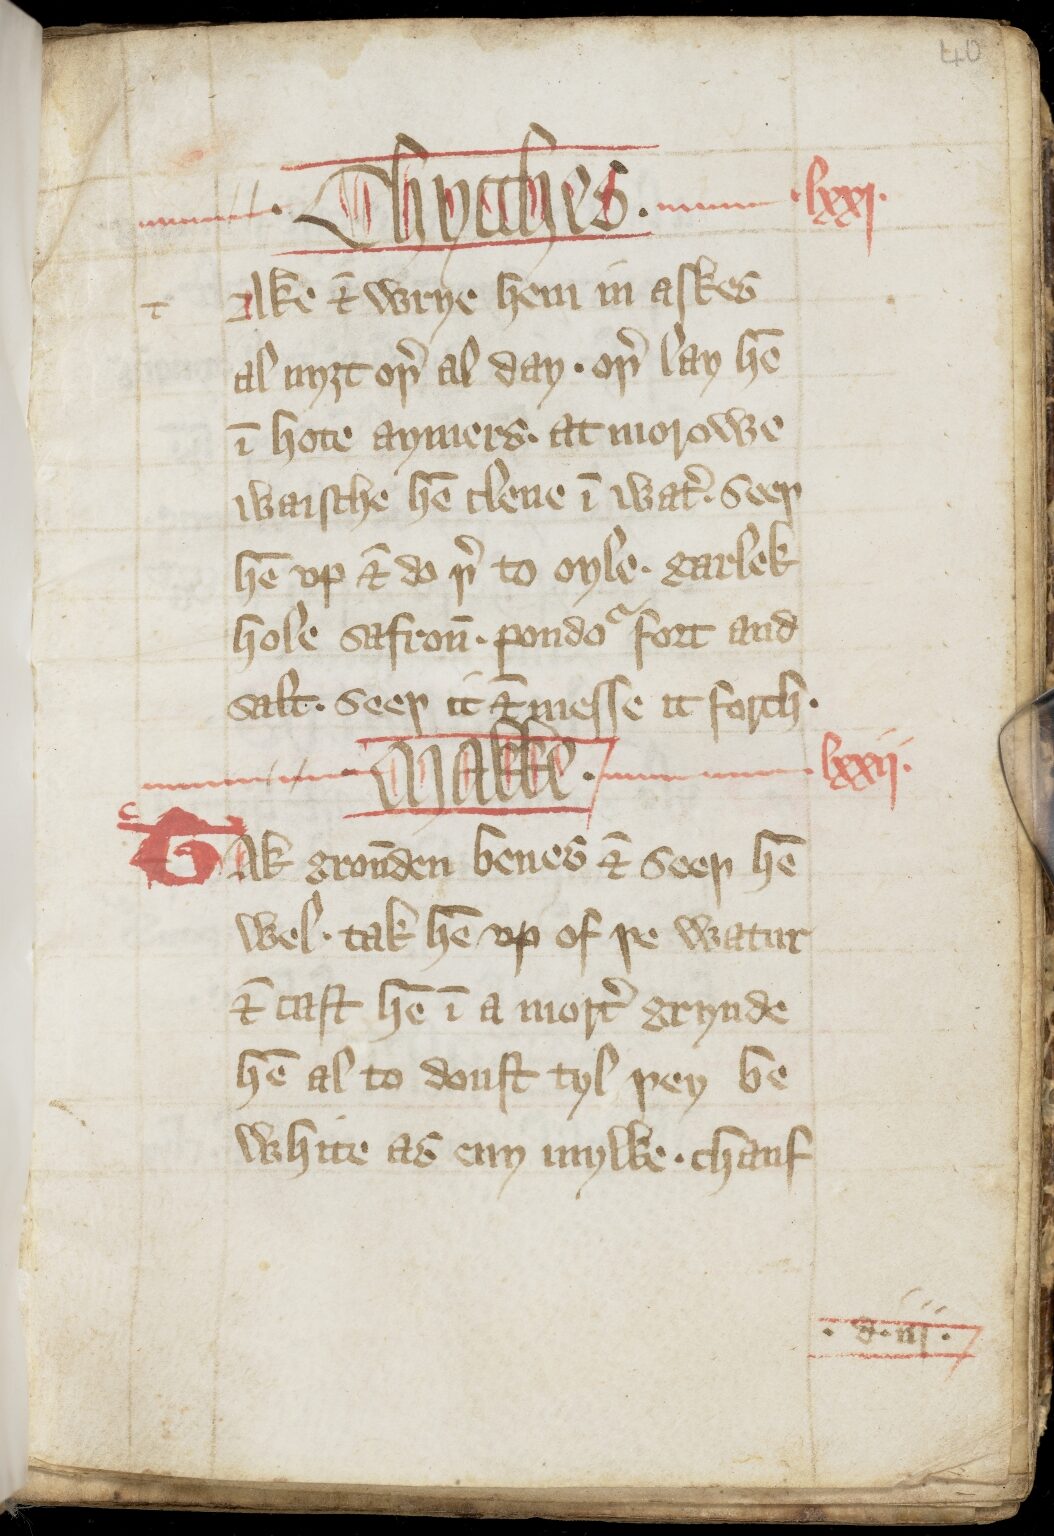 40
· Chycches · lxxi ·
t Ake & wrye hem in askes
al nyȝt oþ͛ al day · oþ͛ lay hē
ī hote aymers · at morowe
waische hē clene ī wat͛ · seeþ
hē vp & do þ͛ to oyle · garlek
hole safron̄ · poudoʳ fort and
salt · seeþ it & messe it forth ·
Makke · lxxii ·
Tak groūden benes & seeþ hē
wel · tak hē vp of þe watur
& cast hē ī a mort͛ grynde
hē al to doust tyl þey be
white as eny mylke · chauf
· d · iii ·